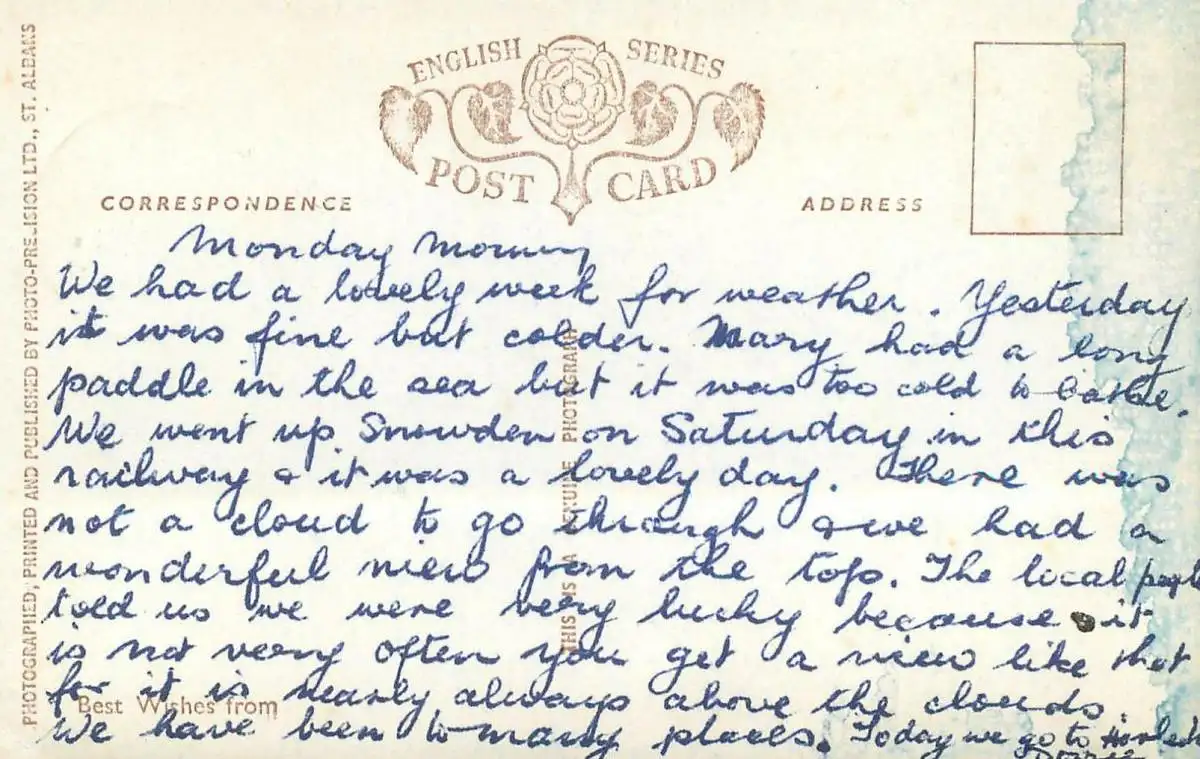 ENGLISH SERIES
POST CARD
CORRESPONDENCE
ADDRESS
Monday Morning
We had a lovely week for weather. Yesterday
it was fine but colder. Mary had a long
paddle in the sea but it was too cold to bathe.
We went up Snowden on Saturday in this
railway & it was a lovely day. There was
not a cloud to go through & we had a
wonderful view from the top. The local people
told us we were very lucky because it
is not very often you get a view like that
for it is nearly always above the clouds.
Best Wishes from
We have been to many places. Today we go to Harlech
PHOTOGRAPHED, PRINTED AND PUBLISHED BY PHOTO-PRECISION LTD., ST. ALBANS
THIS IS A GENUINE PHOTOGRAPH